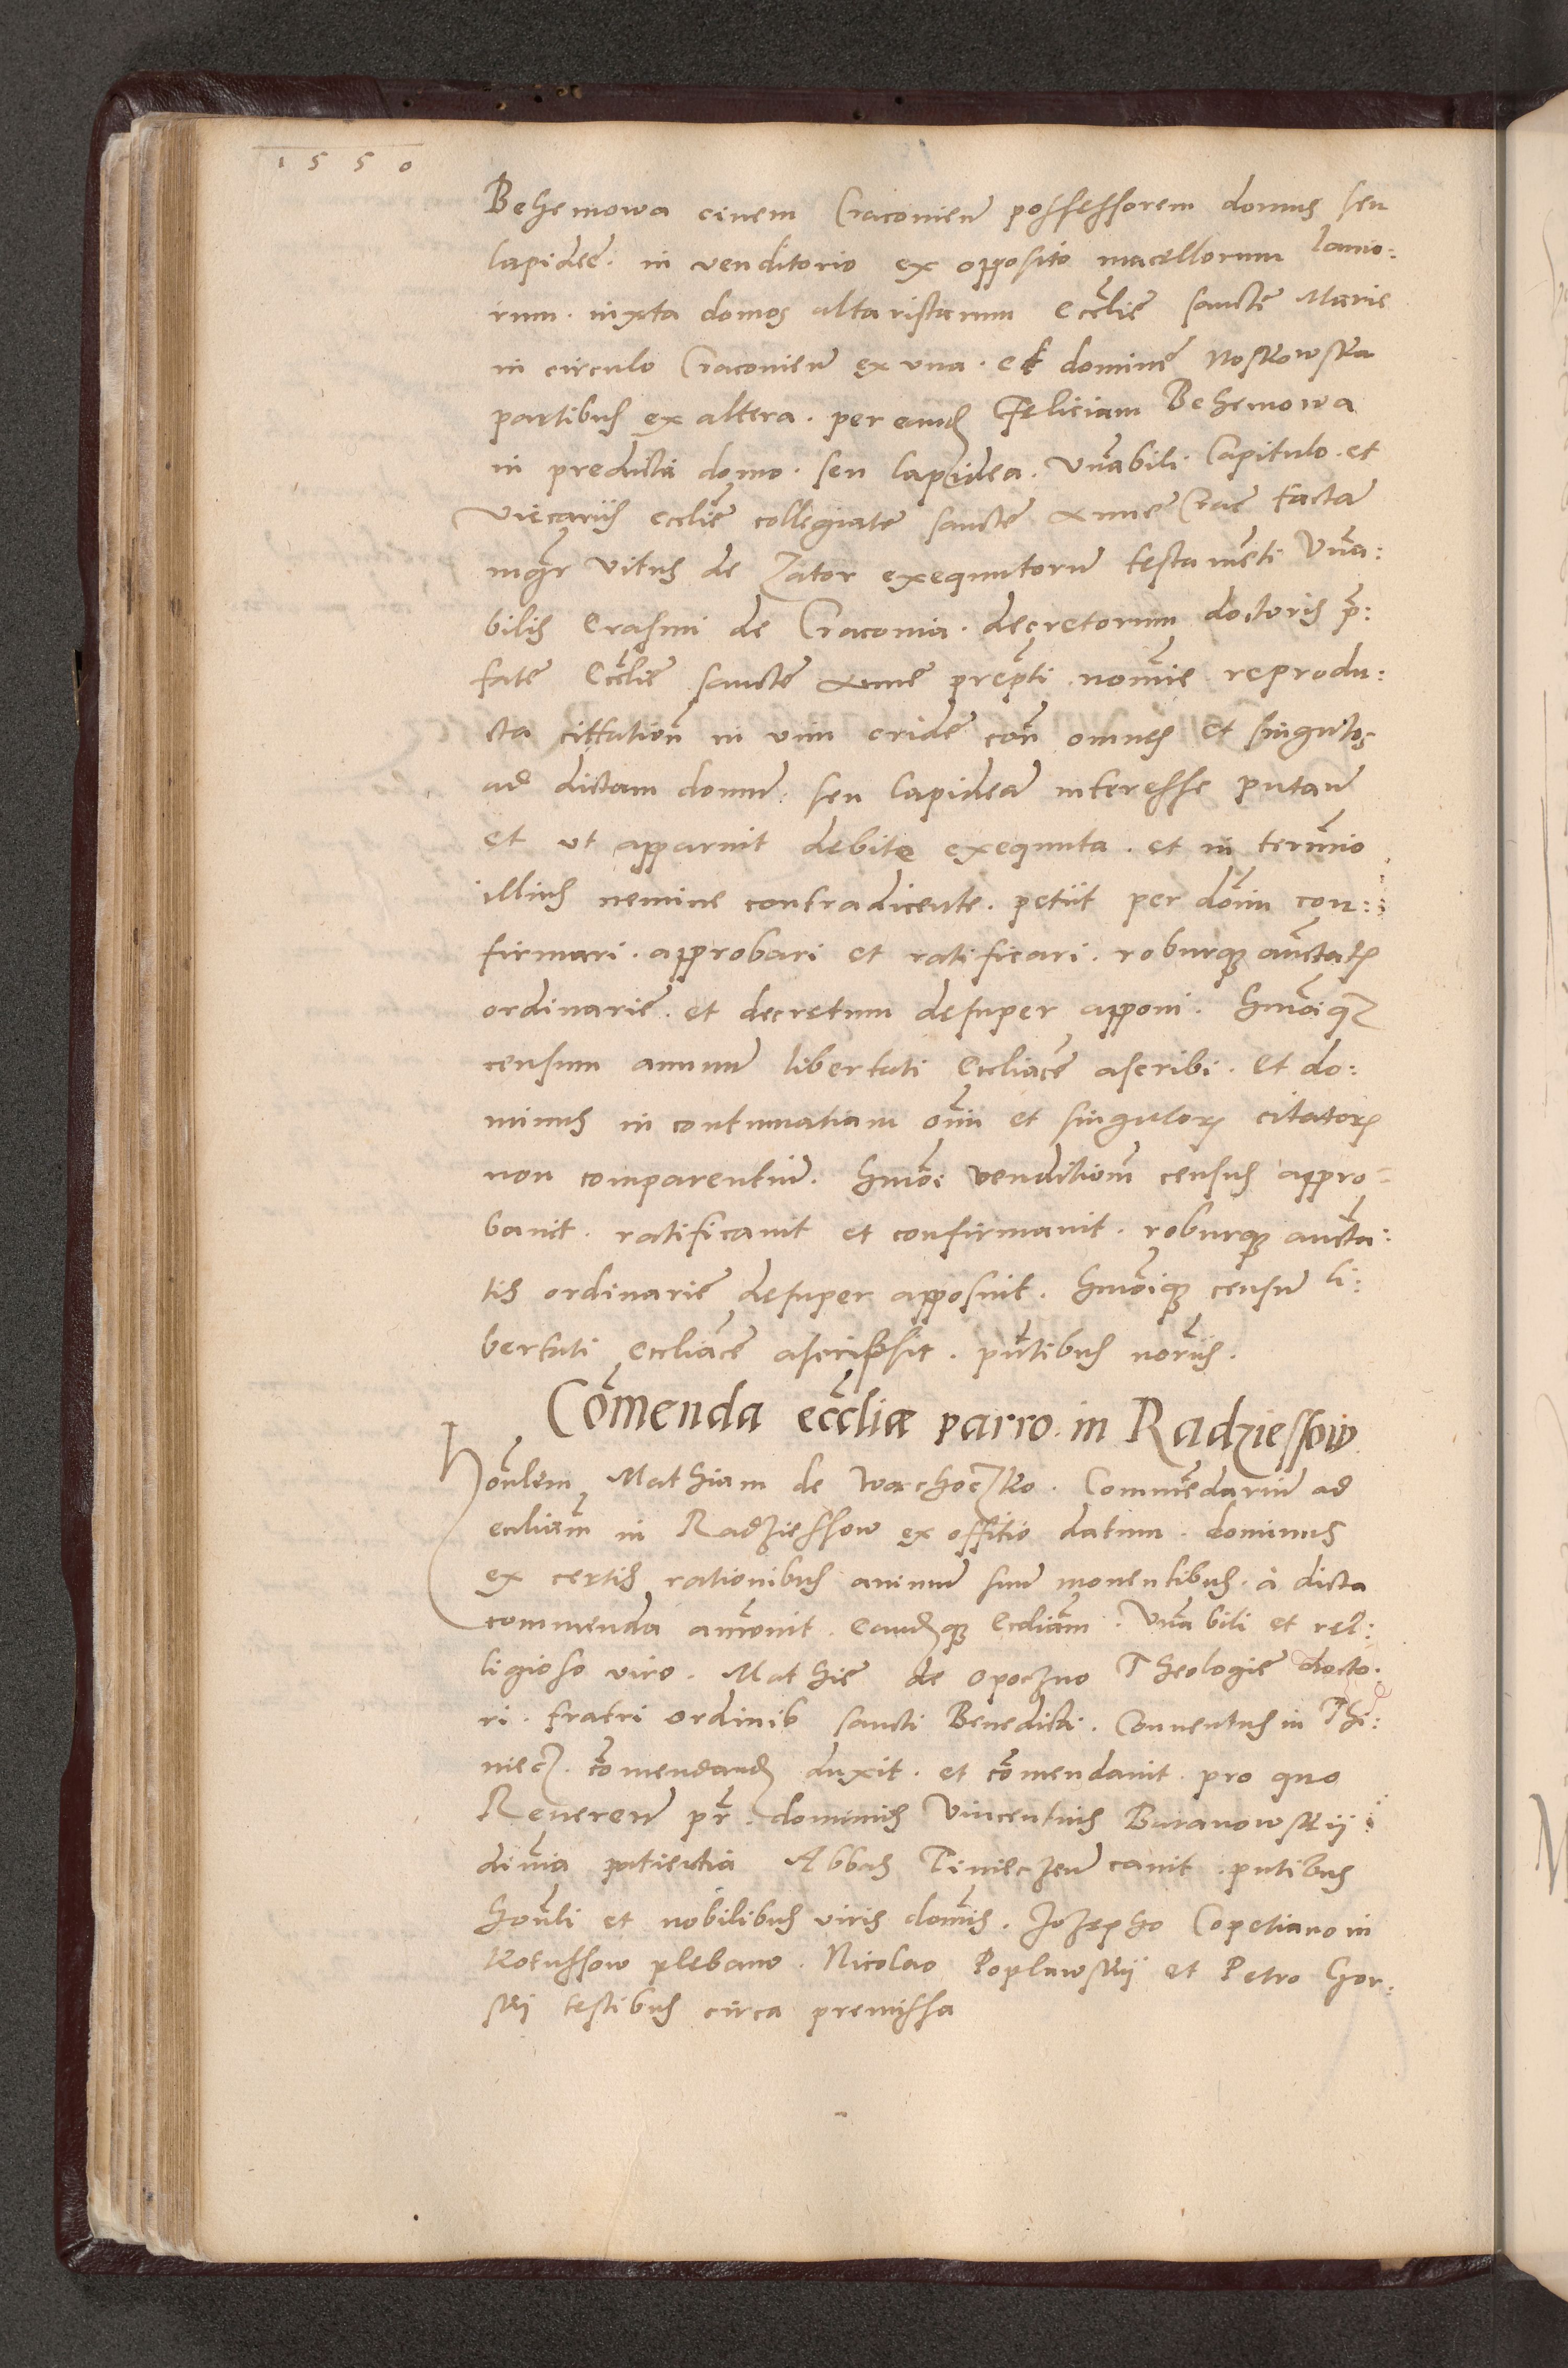 1550
Behemowa civem Cracovien̄ possessorem domus seu
lapideę. in venditorio ex opposito macellorum lanio:
rum. iuxta domos altaristarum Eccl̄ie sanctę Marie
in circulo Cracovien̄ ex una. et dominę Noskowska
partibus ex altera. per eand̄ Feliciam Behemowa
in predicta domo. seu lapidea. Vn̄abili Capitulo. et
vicariis eccl̄ie collegiatę sanctę Annę Crac̄ factā
mgr̄ Vitus de Zator exequutorū testamēti Vn̄a:
bilis Erasmi de Cracovia. decretorum doctoris p̄:
fatę Eccl̄ie sanctę Annę prep̄ti nōmine reprodu:
cta cittation̄ in vim cridę con̄ omnes et singulos
ad dictam domū. seu lapideā interesse putan̄
et ut apparuit debite exequuta. et in termīo
illius nemine contradicente. petiit per dōm con:
firmari. approbari et ratificari. roburq̨ auc̄tatis
ordinarię. et decretum desuper apponi. Hmōiq̨
censum annuū libertati eccl̄iacę ascribi. et do:
minus in contumatiam om̄ et singulor̨ citator̨
non comparentiū. Hmōi venditionē census appro-
bavit. ratificavit et confirmavit. roburq̨ auc̄ta:
tis ordinarię desuper apposuit. Hmōiq̨ censū li:
bertati eccl̄iacę ascripsit. pn̄tibus nōriis.
Cōmenda eccl̄iæ parro. in Radziessow
Hon̄lem Mathiam de Wachoczko. Commēdariū ad
eccliam̄ in Radziessow ex offitio datum. dominus
ex certis rationibus animū suū moventibus. a dicta
commenda amōvit. eandq̨ Eccliam̄. Vn̄abili et rel:
ligioso viro. Mathię de Opoczno Theologię docto.
ri. fratri ordinis sancti Benedicti. Conventus in Thi:
niecz. cōmendand̄ duxit. et cōmendavit. pro quo
Reveren̄ pr̄. dominus Vincentius Baranowskij
divīa patientia Abbas Tinieczen̄ cavit. pn̄tibus
hon̄li et nobilibus viris domīs. Jozepho Copetiano in
Kossussow plebano. Nicolao Poplawskij et Petro Gor:
skj testibus circa premissa